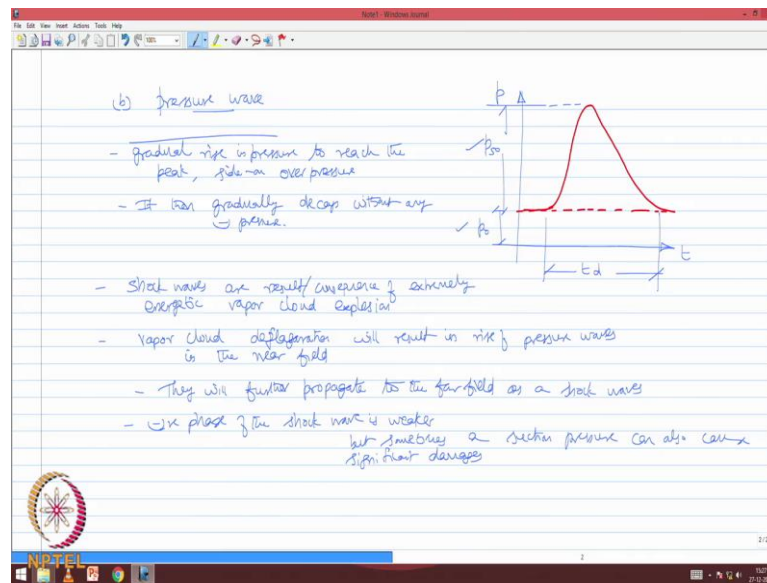 Note1 - Windows Journal
File Edit View Insert Actions Tools Help
(b) pressure wave
- gradual rise in pressure to reach the
peak, side-on overpressure
- It then gradually decays without any
(-) pressure.
P
Pso
Po
t
td
- Shock waves are result/consequence of extremely
energetic vapor cloud explosion
- Vapor cloud deflagration will result in rise of pressure waves
in the near field
- They will further propagate to the far-field as a shock waves
- (-)ve phase of the shock wave is weaker
but sometimes a suction pressure can also cause
significant damages
NPTEL
2